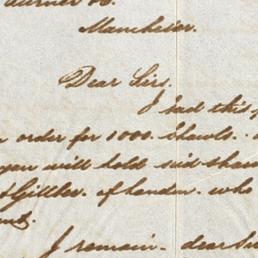 Manchester.
Dear Sirs.
I had this
order for 1000 Shawls.
you will hold said Shaw
of London. who
I remain. dear Sir